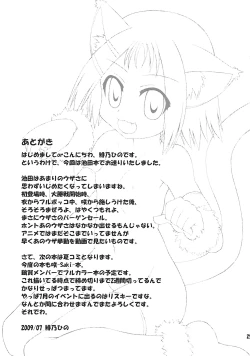 あとがき
はじめましてorこんにちわ、綾乃ひのです。
というわけで、今回は池田本でお送りいたしました。
池田はあまりのウザさに
思わずいじめたくなってしまいますね。
初登場時、大勝戦時、
衣からフルボッコ中、咲から施しうけた後、
そろそろまぜろよ、はやくつもれよ、
まさにウザさのバーゲンセール。
ホントあのウザさはなかなか出せるもんじゃない。
アニメではまだそこまでいってませんが
早くあのウザ挙動を動画で見たいものです。
さて、次の本は夏コミとなります。
今度の本も咲-Saki-本、
龍門メンバーでフルカラー本の予定です。
これ描いてる時点で締め切りまで2週間切ってるんで
かなりせっぱつまってます。
やっぱ7月のイベントに出るのはリスキーですな。
なんとか間に合わせますのでまたよろしくです。
それでわ。
2009/07 綾乃ひの